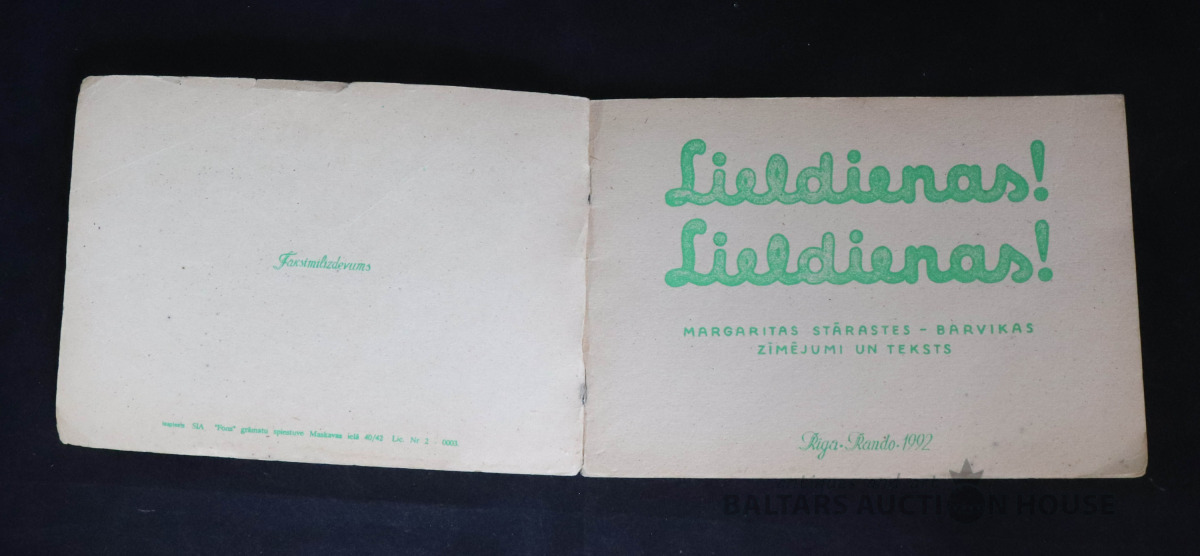 Faksimilizdevums
SIA "Poza" grāmatu spiestuve Maskavas ielā 40/42 Lic. Nr 2 - 0003.
Lieldienas!
Lieldienas!
MARGARITAS STĀRASTES - BARVIKAS
ZĪMĒJUMI UN TEKSTS
Rīga · Rando · 1992
BALTARS AUCTION HOUSE